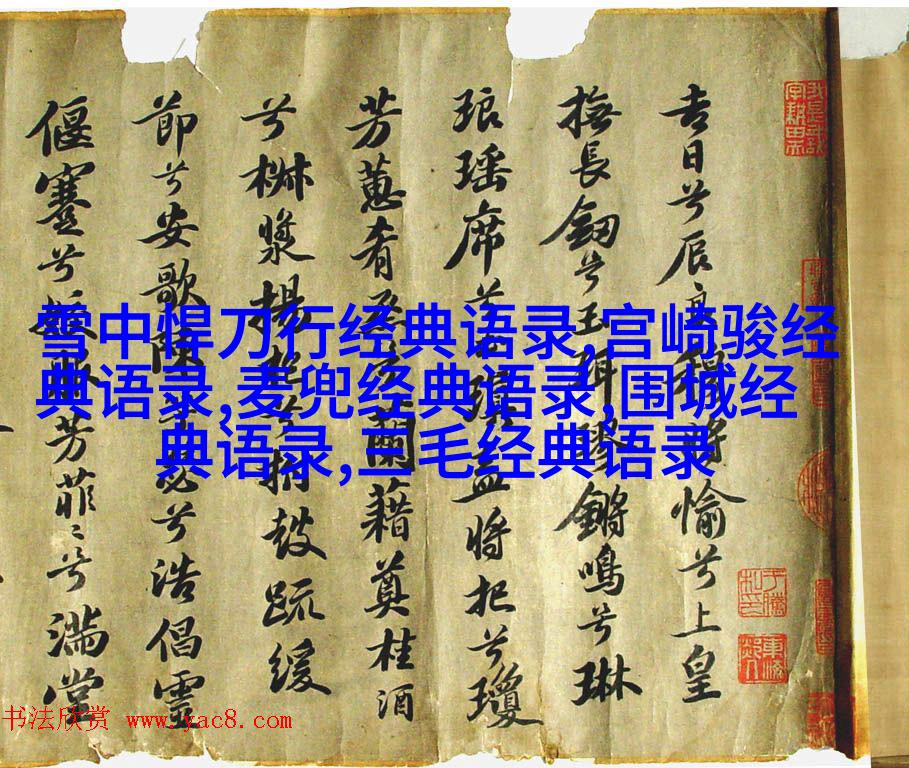 吉日兮辰良穆將愉兮上皇
撫長劒兮玉珥璆鏘鳴兮琳
琅瑶席兮玉瑱盍將把兮瓊
芳蕙肴蒸兮蘭藉奠桂酒
兮椒漿揚枹兮拊鼓疏緩
節兮安歌陳竽瑟兮浩倡靈
偃蹇兮芳菲〻兮滿堂
雪中悍刀行经典语录,宫崎骏经
典语录,麦兜经典语录,围城经
典语录,三毛经典语录
书法欣赏 www.yac8.com